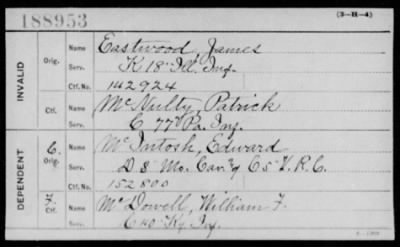 188953
(3-H-4)
INVALID
Orig.
Name Eastwood, James
Serv. K 18" Ill, Inf.
Ctf. No. 142924
Ctf.
Name McNulty, Patrick
Serv. C 77" Pa. Inf.
DEPENDENT
C.
Orig.
Name McIntosh, Edward
Serv. D 8" Mo. Cav. & C 5" V.R.C.
Ctf. No. 152800
Ctf.
Name McDowell, William F.
Serv. C 40" Ky. Inf.